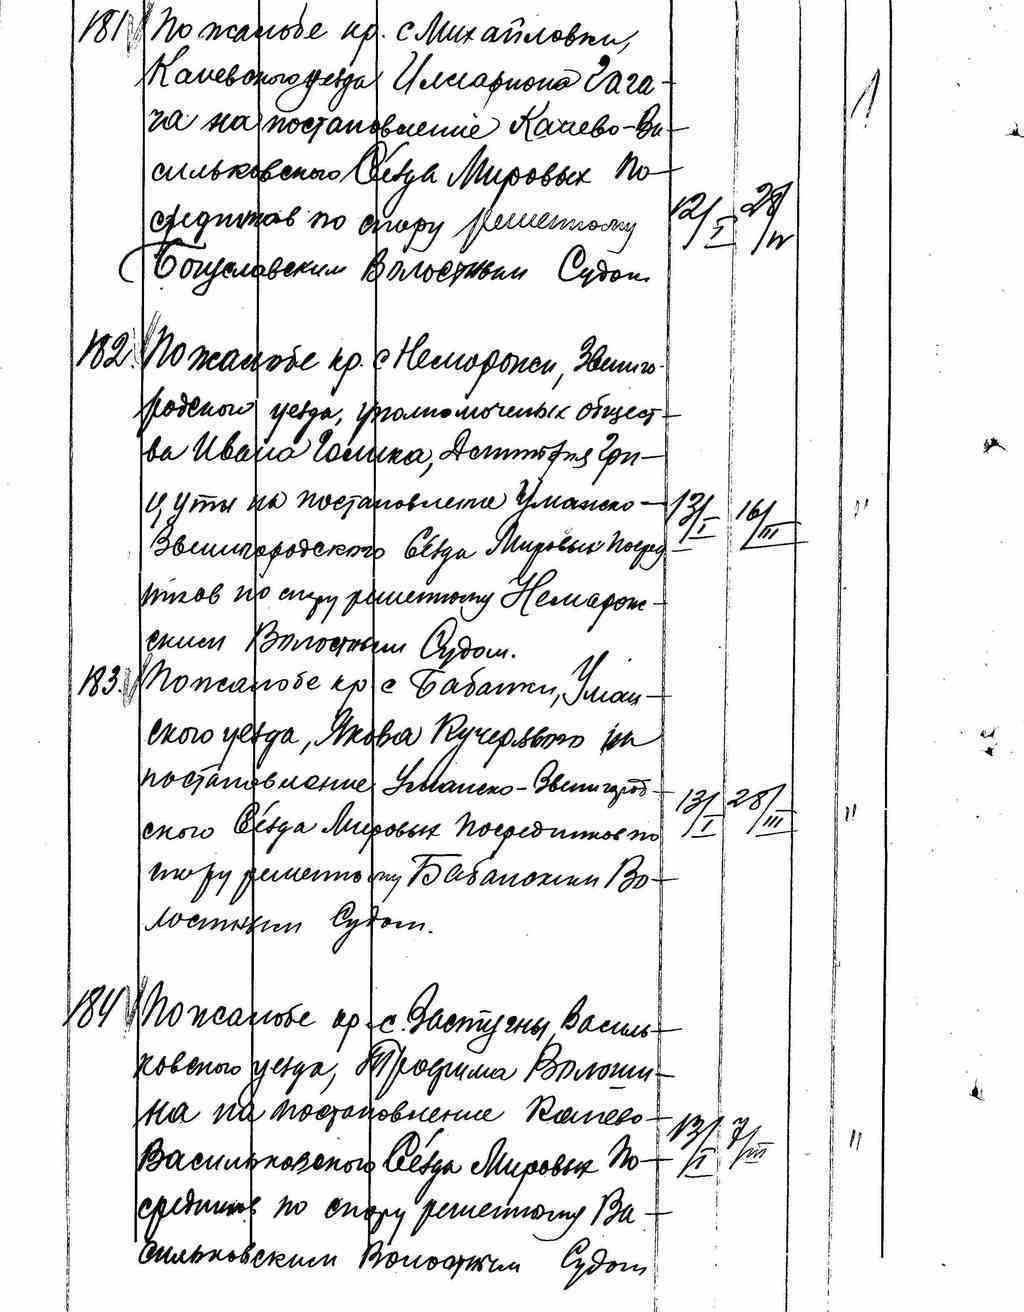 181 По жалобе кр. с Михайловки,
Каневского уезда Иллариона Гага-
ча на постановление Канево-Ва-
сильковского Съезда Мировых По-
средников по спору решенному 12/I 28/IV
Богуславским Волостным Судом
182. По жалобе кр. с Неморожи, Звениго-
родского уезда, уполномоченых общест-
ва Ивана Голика, Дмитрия Гри-
цуты на постановление Уманско- 13/I 16/III "
Звенигородского Съезда Мировых Посред-
ников по спору решенному Неморож-
ским Волостным Судом.
183. По жалобе кр с Бабанки, Уман-
ского уезда, Якова Кучерявого на
постановление Уманско-Звенигород-
ского Съезда Мировых Посредников по 13/I 28/III "
спору решенному Бабанским Во-
лостным Судом.
184 По жалобе кр. с. Застугны, Василь-
ковского уезда, Трофима Волоши-
на на постановление Канево-
Васильковского Съезда Мировых По- 13/I 7/III "
средников по спору решенному Ва-
сильковским Волостным Судом